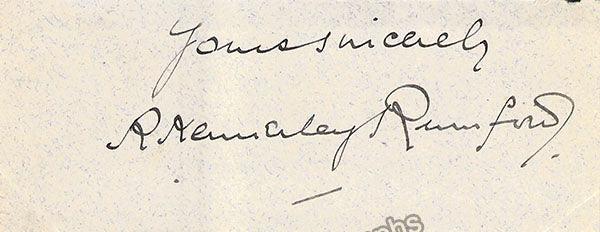 Yours sincerely
R Kennerley Rumford.
phs